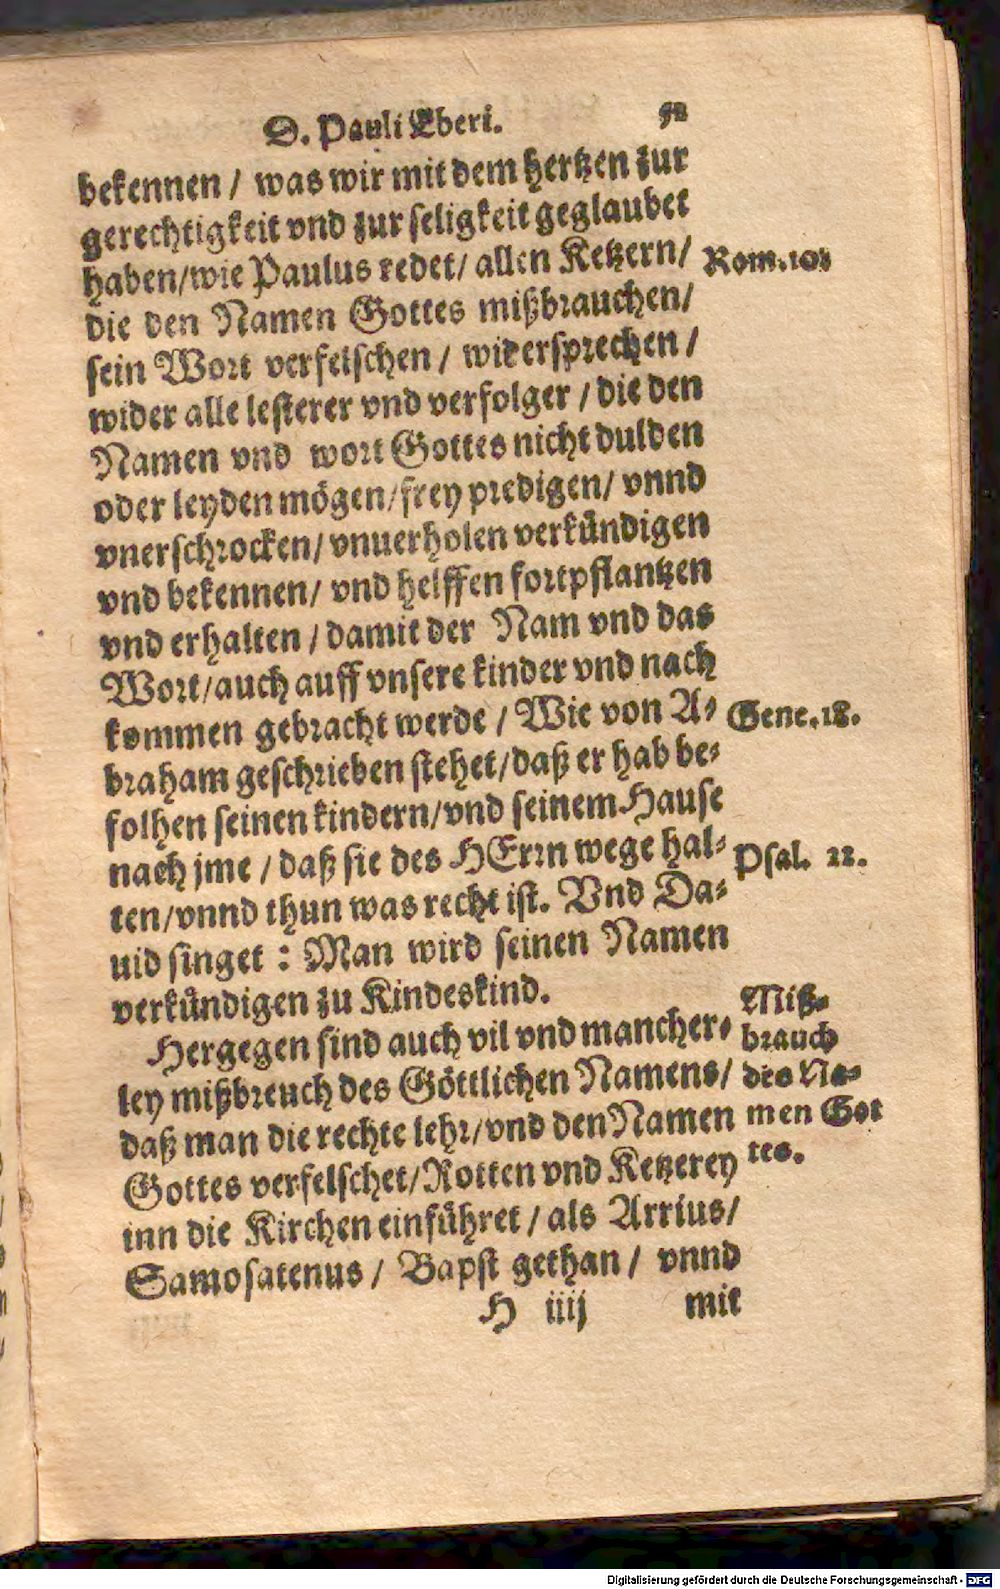 D. Pauli Eberi. 52
bekennen / was wir mit dem hertzen zur
gerechtigkeit vnd zur seligkeit geglaubet
haben/wie Paulus redet/ allen Ketzern/
Rom.10.
die den Namen Gottes mißbrauchen/
sein Wort verfelschen / widersprechen /
wider alle lesterer vnd verfolger / die den
Namen vnd wort Gottes nicht dulden
oder leyden mögen/frey predigen/ vnnd
vnerschrocken/ vnuerholen verkündigen
vnd bekennen/ vnd helffen fortpflantzen
vnd erhalten / damit der Nam vnd das
Wort/auch auff vnsere kinder vnd nach
kommen gebracht werde / Wie von A-
Gene.18.
braham geschrieben stehet/daß er hab be-
folhen seinen kindern/vnd seinem Hause
nach jme / daß sie des HErrn wege hal-
Psal. 22.
ten/vnnd thun was recht ist. Vnd Da-
uid singet : Man wird seinen Namen
verkündigen zu Kindeskind.
Hergegen sind auch vil vnd mancher-
ley mißbreuch des Göttlichen Namens/
daß man die rechte lehr/vnd den Namen
Gottes verfelschet/Rotten vnd Ketzerey
inn die Kirchen einführet / als Arrius/
Samosatenus / Bapst gethan / vnnd
Miß-
brauch
des Na-
men Got
tes.
H iiij mit
Digitalisierung gefördert durch die Deutsche Forschungsgemeinschaft - DFG